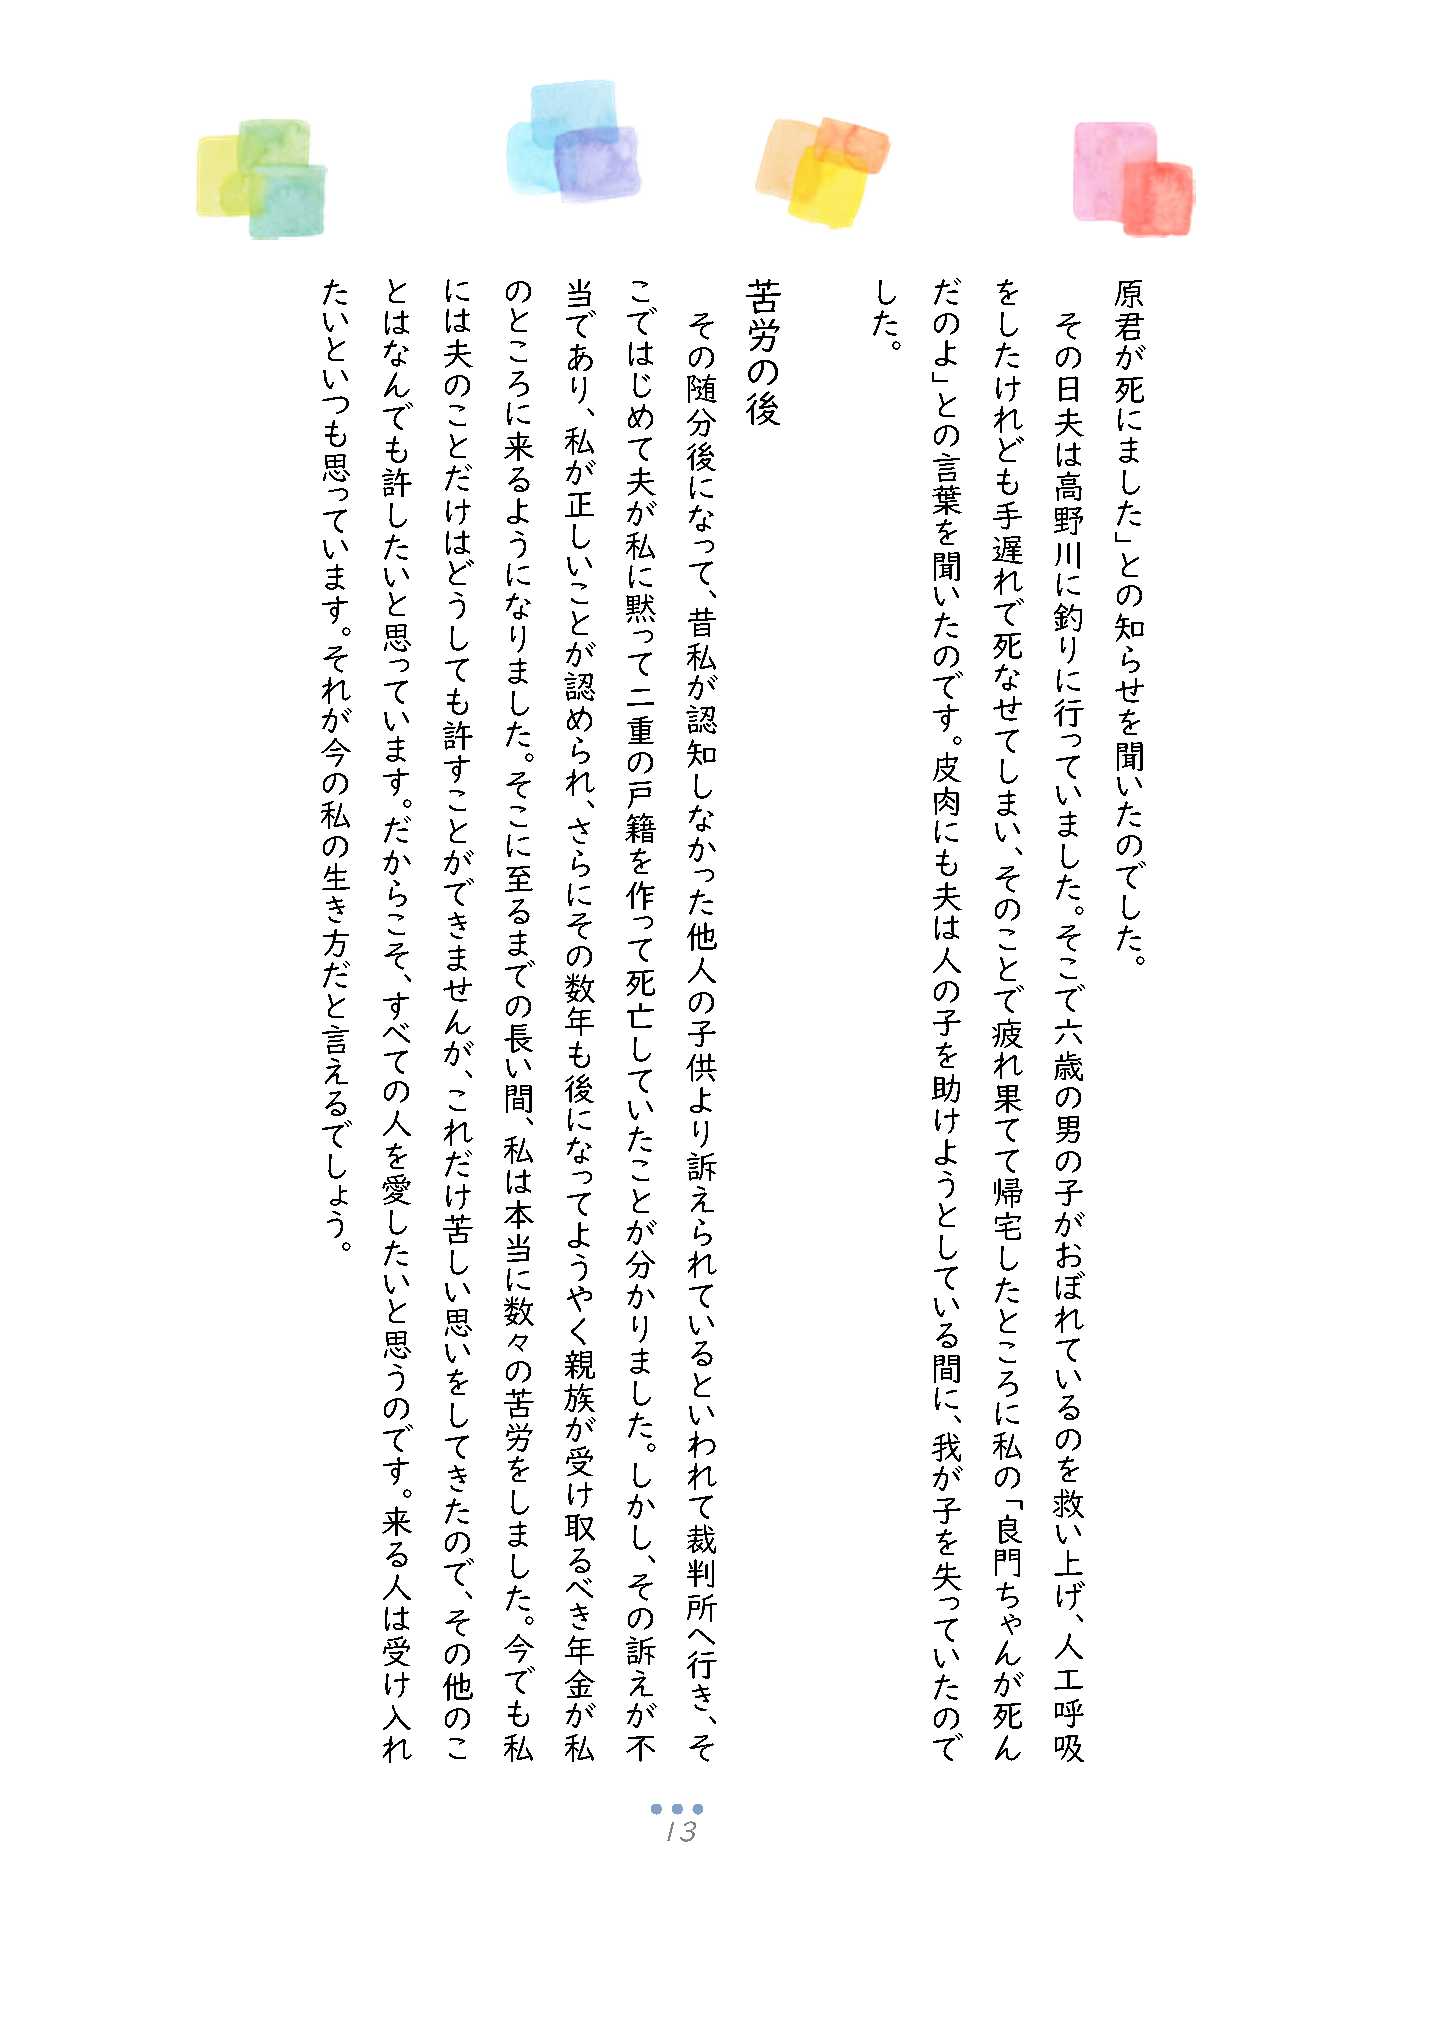 原君が死にました」との知らせを聞いたのでした。
その日夫は高野川に釣りに行っていました。そこで六歳の男の子がおぼれているのを救い上げ、人工呼吸
をしたけれども手遅れで死なせてしまい、そのことで疲れ果てて帰宅したところに私の「良門ちゃんが死ん
だのよ」との言葉を聞いたのです。皮肉にも夫は人の子を助けようとしている間に、我が子を失っていたので
した。
苦労の後
その随分後になって、昔私が認知しなかった他人の子供より訴えられているといわれて裁判所へ行き、そ
こではじめて夫が私に黙って二重の戸籍を作って死亡していたことが分かりました。しかし、その訴えが不
当であり、私が正しいことが認められ、さらにその数年も後になってようやく親族が受け取るべき年金が私
のところに来るようになりました。そこに至るまでの長い間、私は本当に数々の苦労をしました。今でも私
には夫のことだけはどうしても許すことができませんが、これだけ苦しい思いをしてきたので、その他のこ
とはなんでも許したいと思っています。だからこそ、すべての人を愛したいと思うのです。来る人は受け入れ
たいといつも思っています。それが今の私の生き方だと言えるでしょう。
13